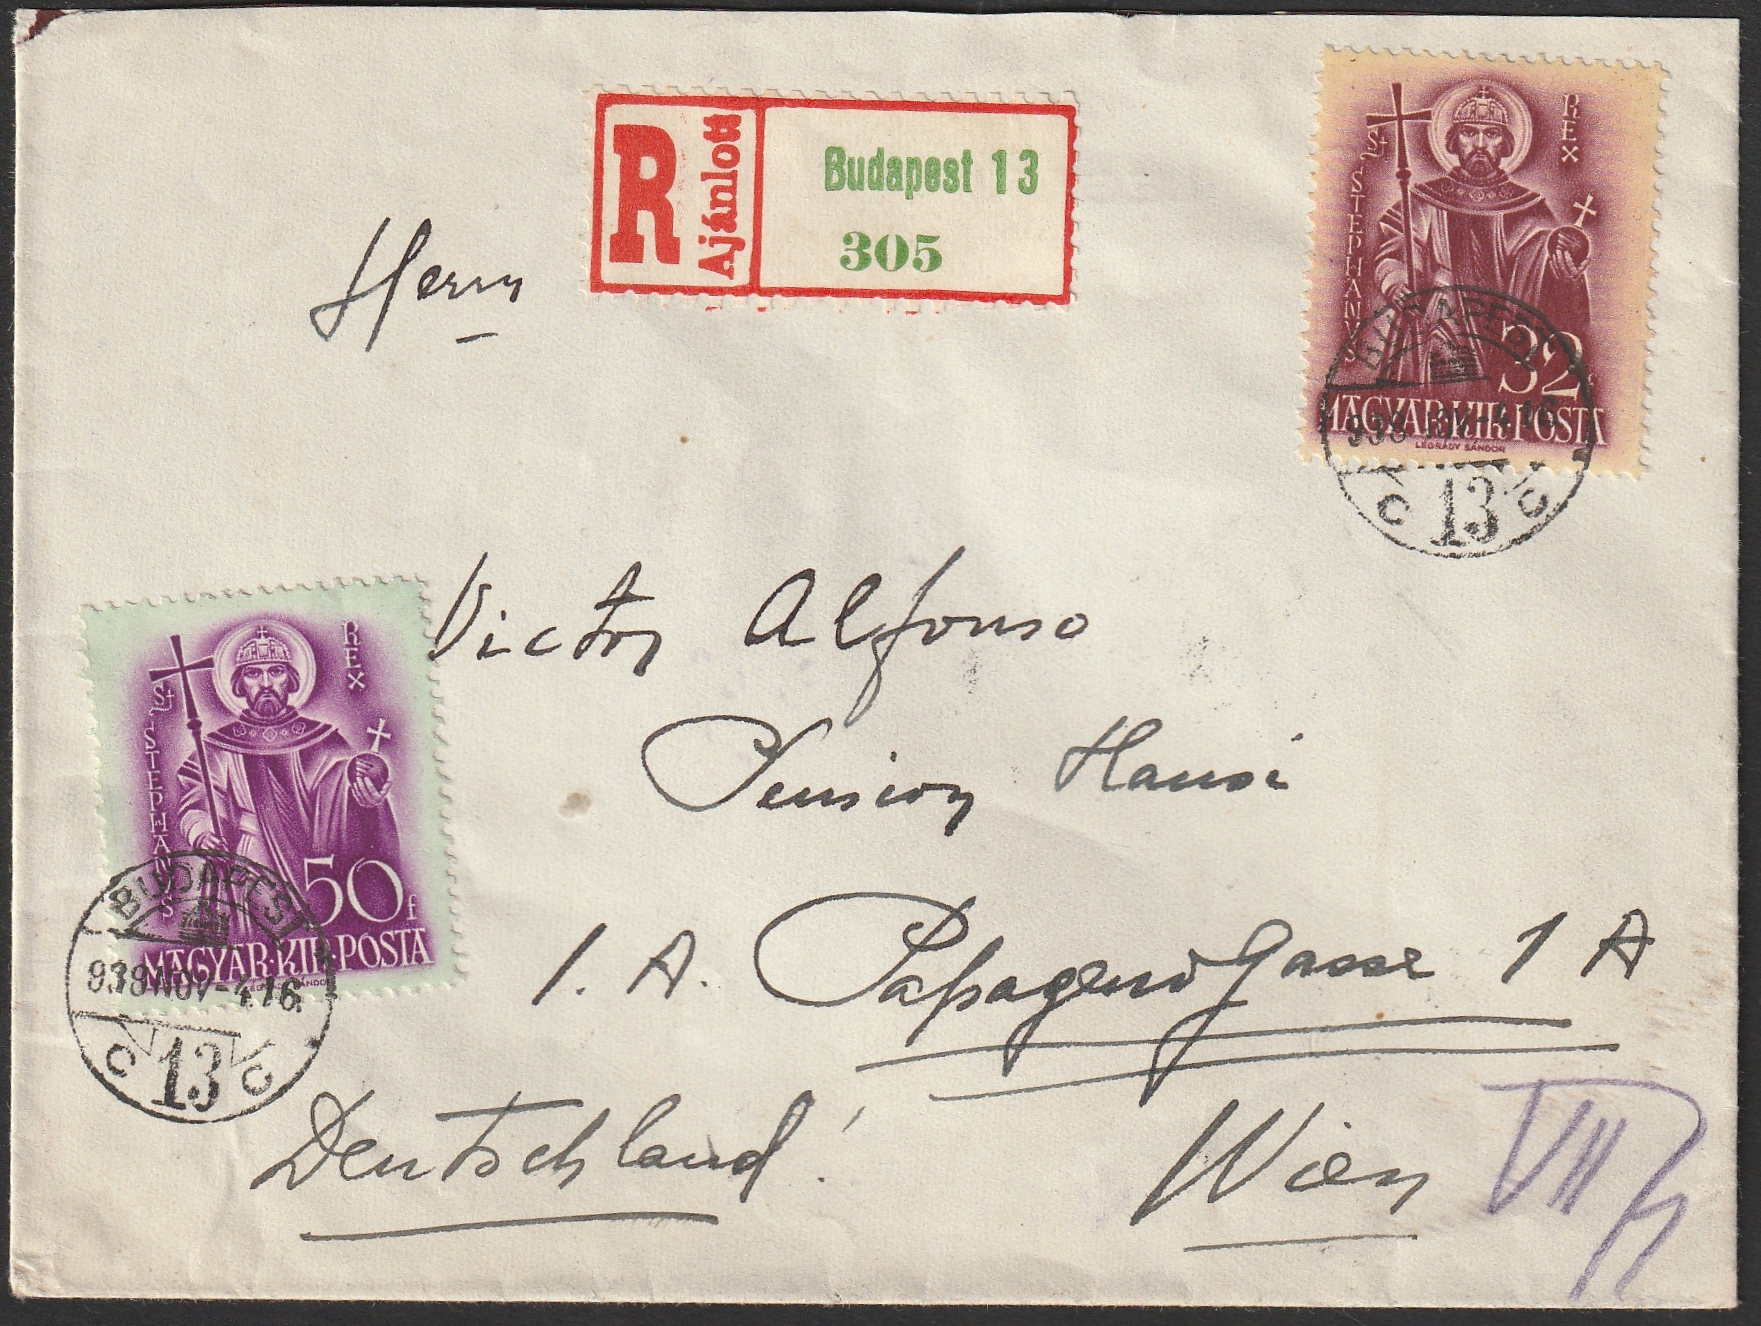 R Ajánlott
Budapest 13
305
REX
St STEPHANVS
32
MAGYAR·KIR·POSTA
LEGRÁDY SÁNDOR
BUDAPEST
938 NOV -4.16
C 13 C
Herrn
Victor Alfonso
Pension Hansi
1. A. Papagenogasse 1 A
Wien
Deutschland!
REX
St STEPHANVS
50f
MAGYAR·KIR·POSTA
LEGRÁDY SÁNDOR
BUDAPEST
938 NOV -4.16
C 13 C
VII